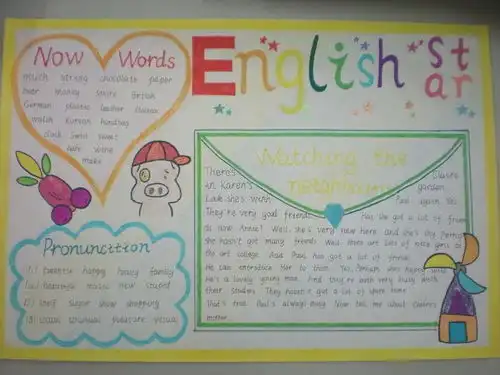 Now Words
much string chocolate paper
beer money Swiss British
German plastic leather
watch Korean handbag
clock Swiss sweet
wine
make
English Star
Pronuncition
(1) sweetie happy heavy family
(2) beautiful music new stupid
(3) shirt sugar show shopping
(4) usual unusual pleasure visual
Watching the neighbours
There's Claire
in Karen's garden
Look she's with Paul again
They're very good friends. Has she got a lot of friends
Well she's very new here and she's shy. Pretty
she hasn't got many friends. Well there are lots of nice girls at
the art college. And Paul has got a lot of friends.
He can introduce her to them. Yes, perhaps, she's happy with
He's a lovely young man. And they're both very busy with
their studies. They haven't got a lot of spare time.
That's true. Paul's always busy. Now tell me about Claire's
mother.